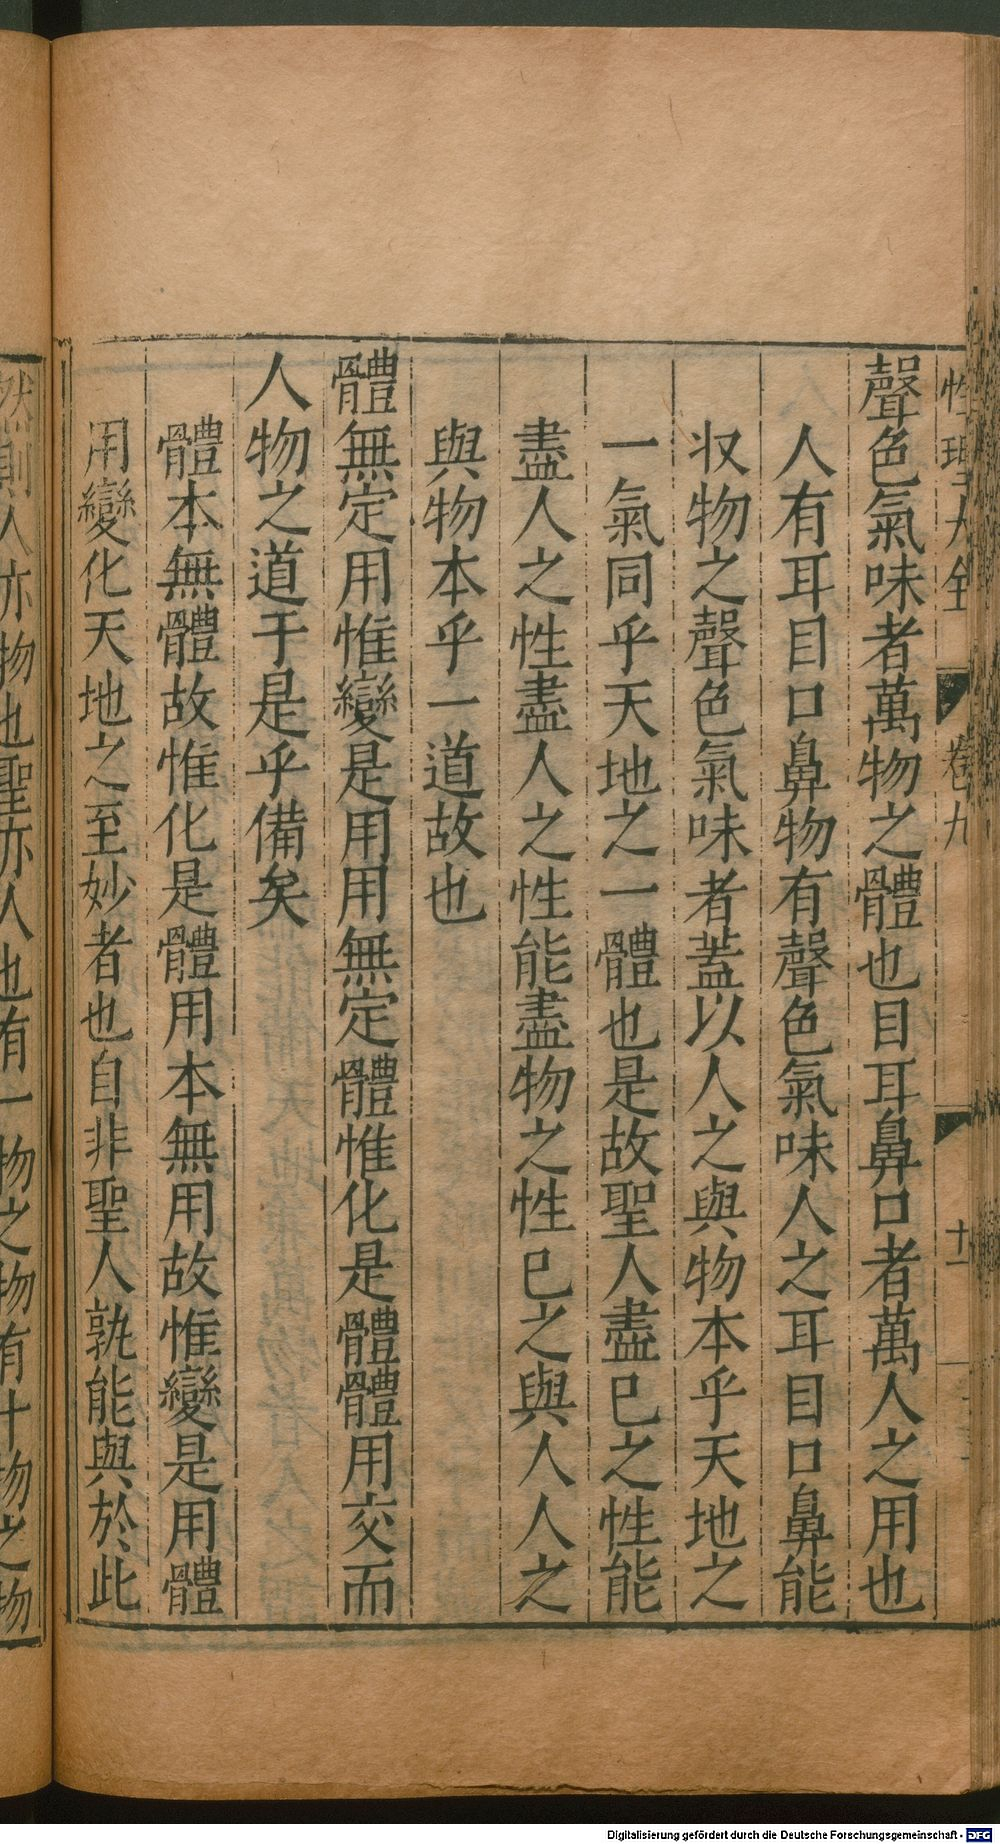 性理大全 卷九 十一
聲色氣味者萬物之體也目耳鼻口者萬人之用也
人有耳目口鼻物有聲色氣味人之耳目口鼻能
収物之聲色氣味者蓋以人之與物本乎天地之
一氣同乎天地之一體也是故聖人盡已之性能
盡人之性盡人之性能盡物之性已之與人人之
與物本乎一道故也
體無定用惟變是用用無定體惟化是體體用交而
人物之道于是乎備矣
體本無體故惟化是體用本無用故惟變是用體
用變化天地之至妙者也自非聖人孰能與於此
然則人亦物也聖亦人也有一物之物有十物之物
Digitalisierung gefördert durch die Deutsche Forschungsgemeinschaft - DFG